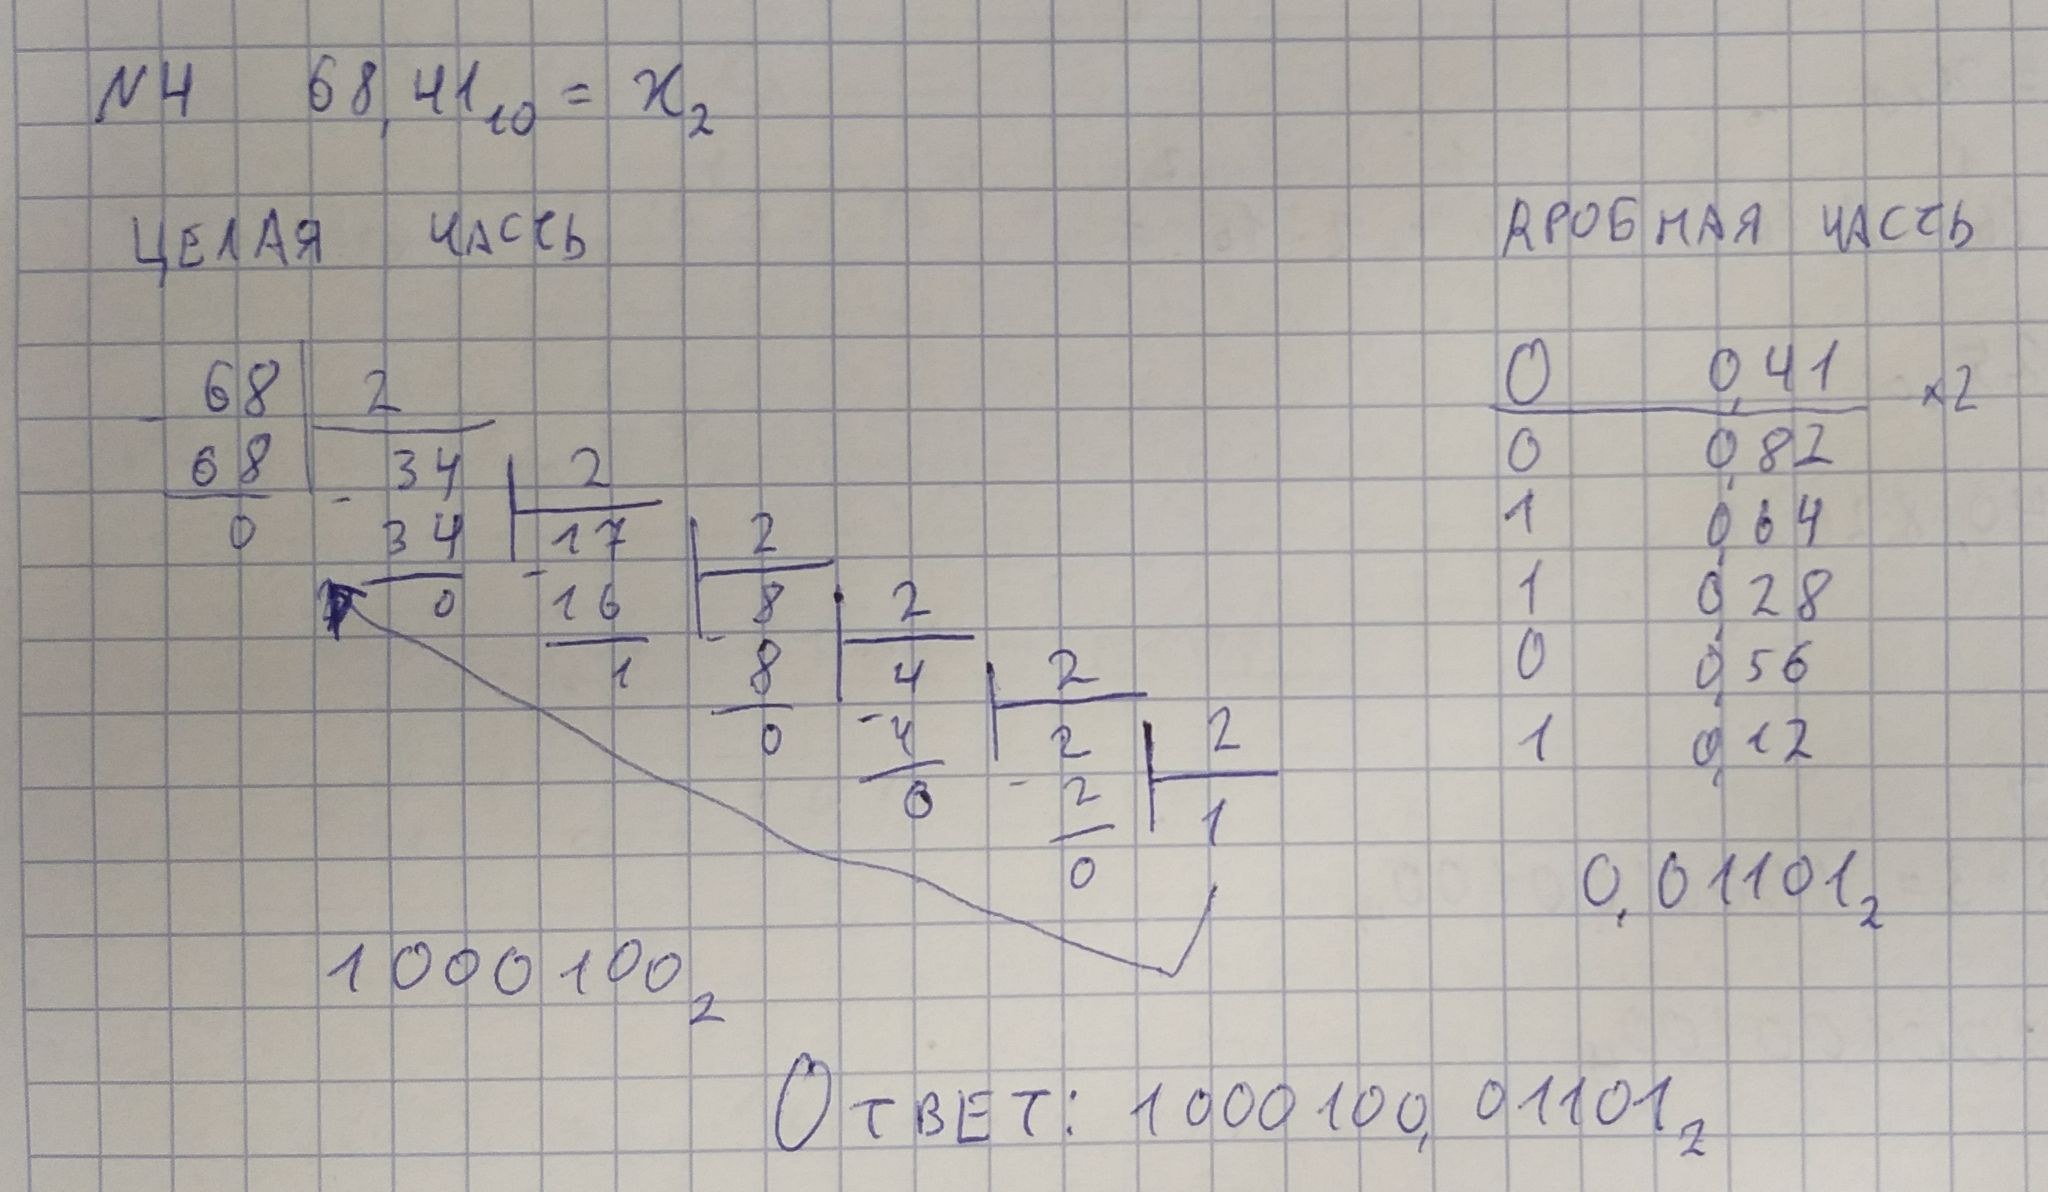 N4 68,41₁₀ = x₂
ЦЕЛАЯ ЧАСТЬ
68 2
68 34 2
0 34 17 2
0 16 8 2
1 8 4 2
0 4 2 2
0 2 1
0
1000100₂
ДРОБНАЯ ЧАСТЬ
0 0,41 ×2
0 0,82
1 0,64
1 0,28
0 0,56
1 0,12
0,01101₂
Ответ: 1000100,01101₂